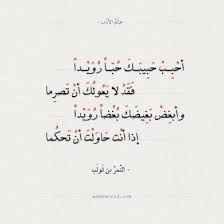 عالم الأدب
أحْبِـبْ حَبِيبَـكَ حُبّـاً رُوَيْـــداً
فَقَدْ لا يَعُولُكَ أنْ تَصرِما
وأبغضْ بَغيضَكَ بُغْضاً رُوَيْداً
إذا أنتَ حاوَلْتَ أنْ تَحكُما
- النَّمِرُ بن تَولَب -
adabworld.com